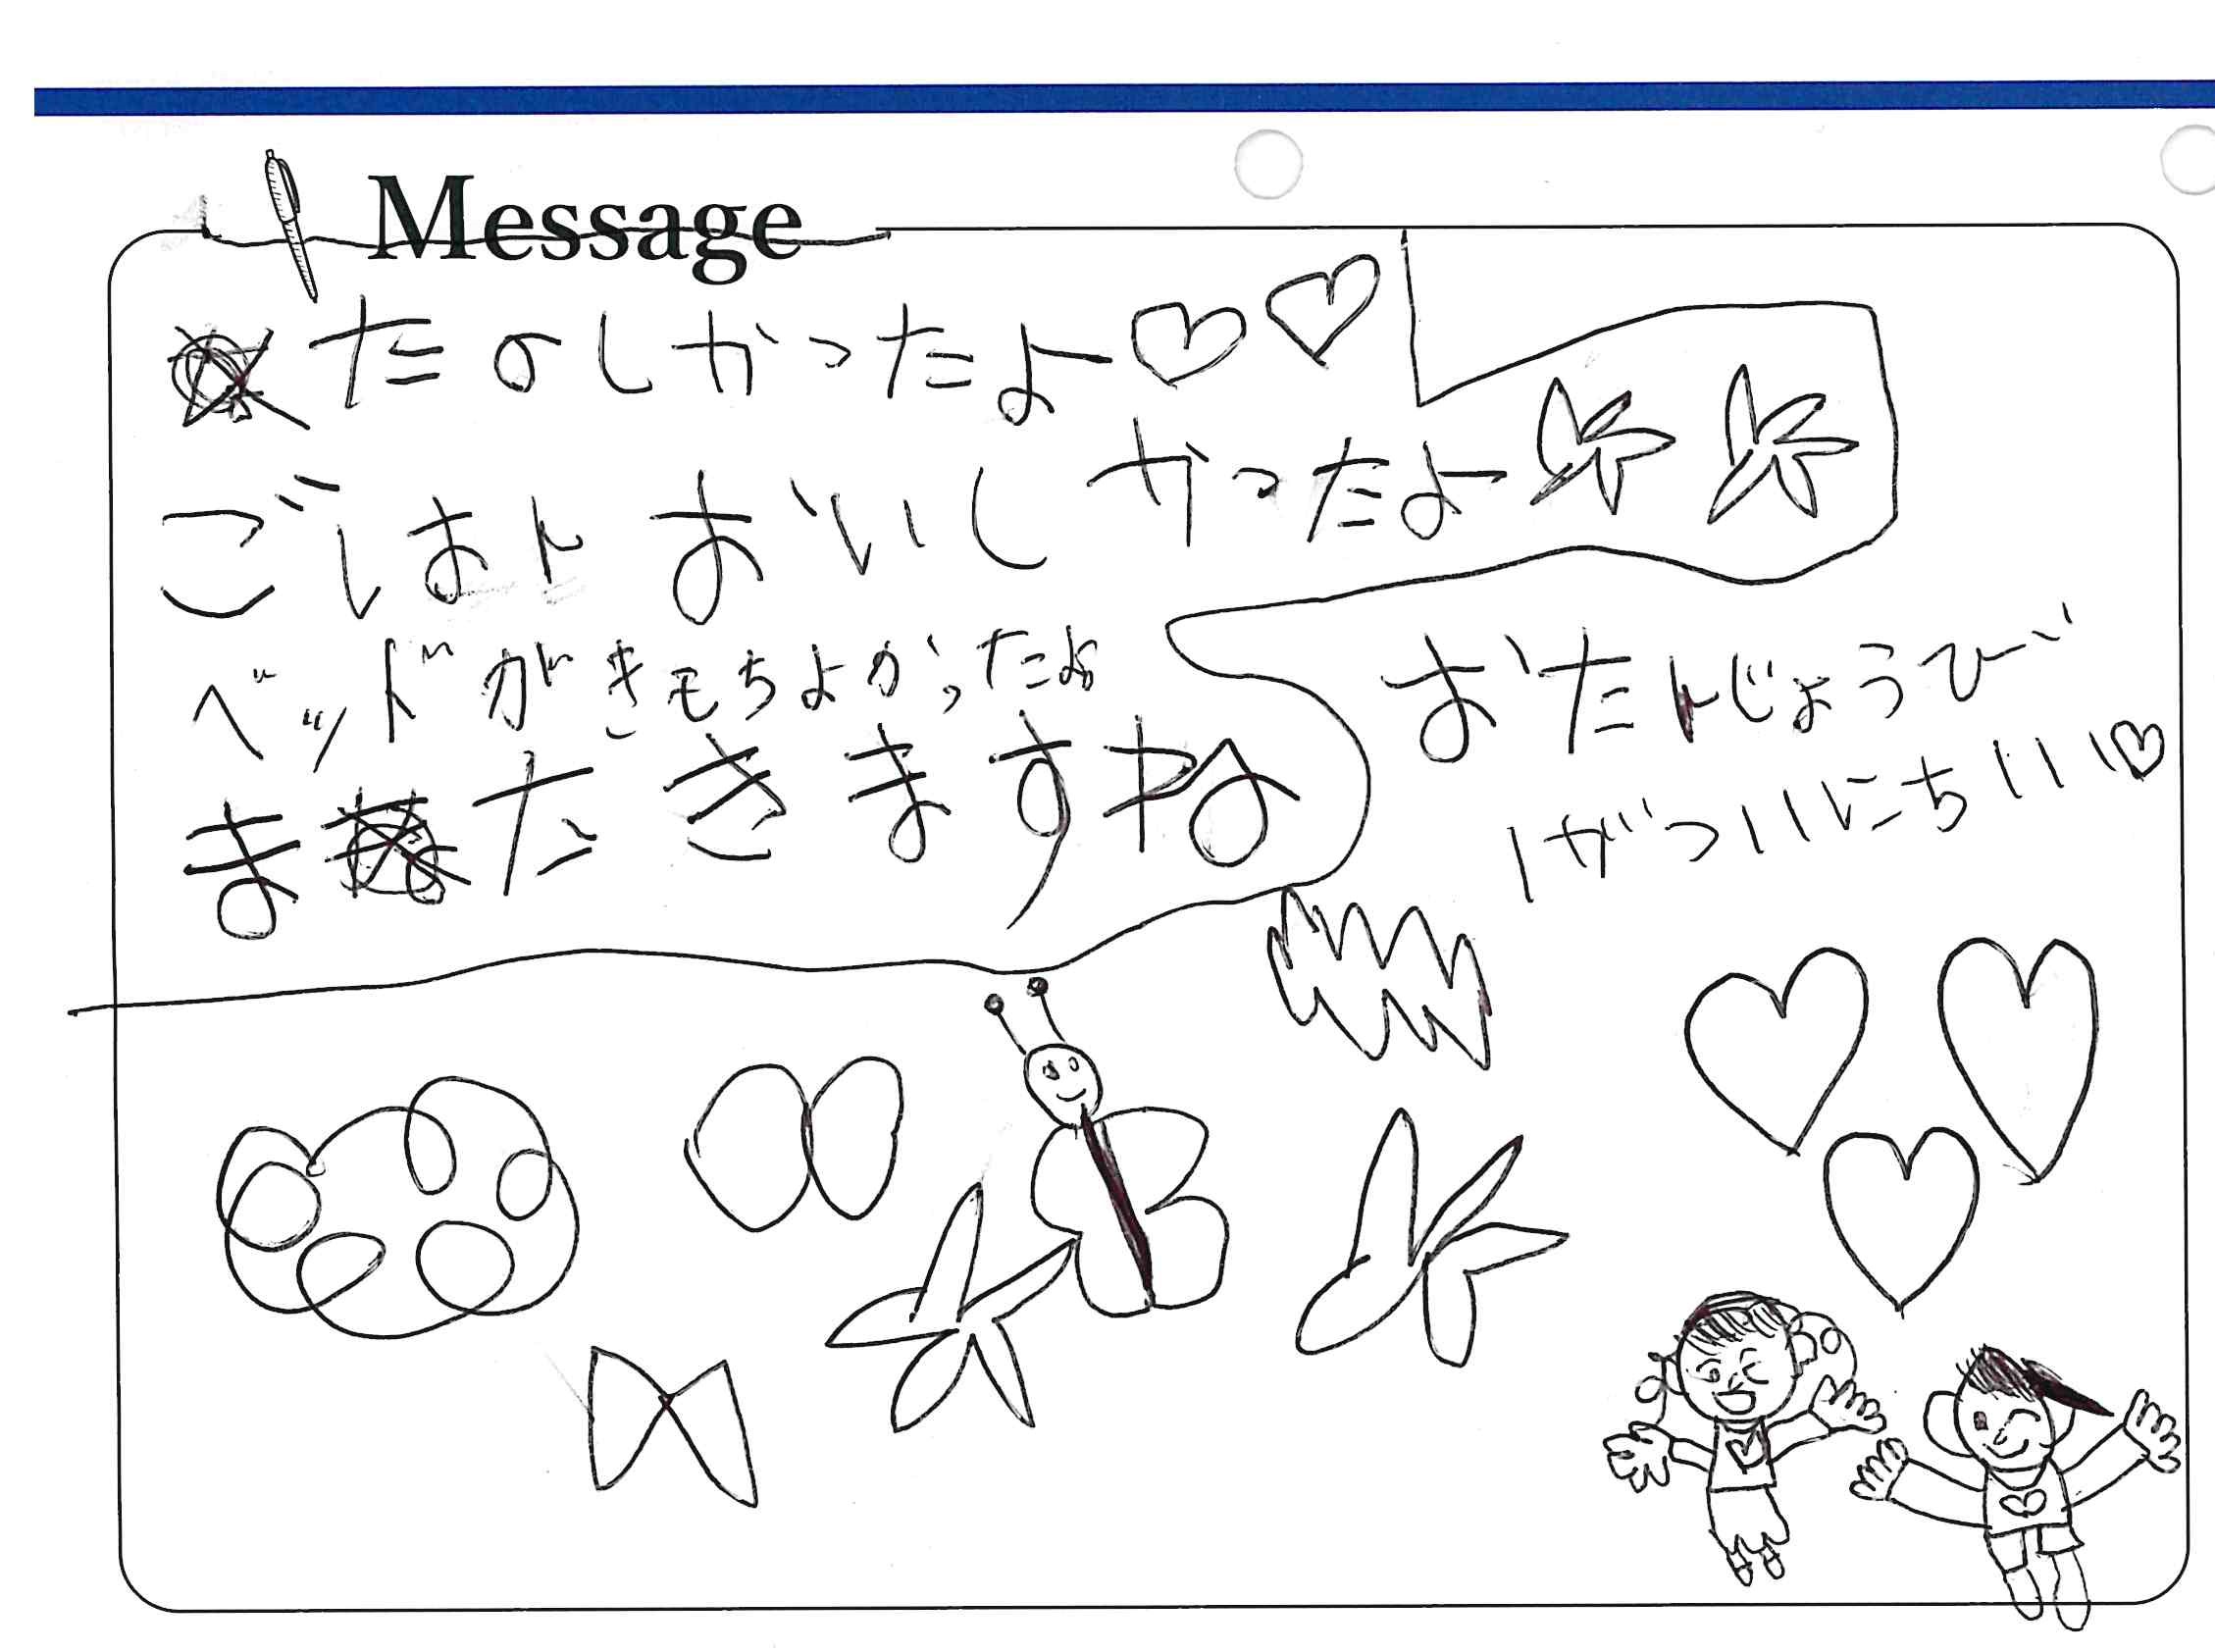 Message
たのしかったよ♡♡
ごはんおいしかったよ
ベッドがきもちよかったよ
またきますね
おたんじょうび
1がつ11にち!!!♡